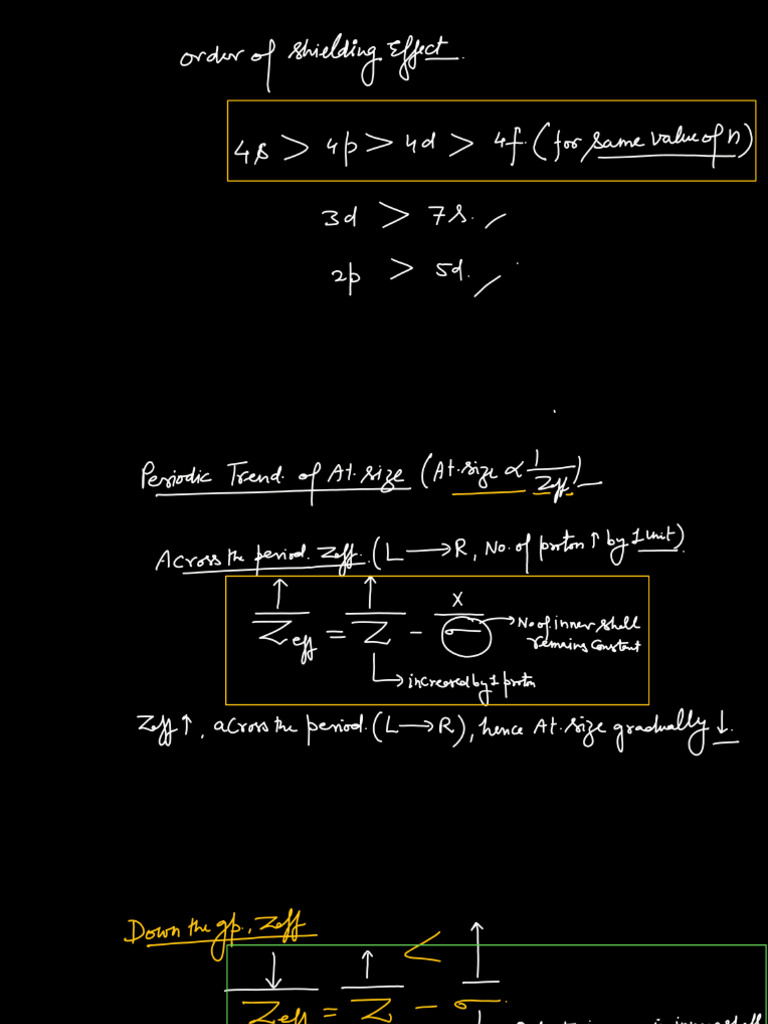 Order of Shielding Effect.
4s > 4p > 4d > 4f. (for same value of n)
3d > 7s.
2p > 5d.
Periodic Trend. of At. size (At. size ∝ 1/Zeff)
Across the period. Zeff. (L → R, No. of proton ↑ by 1 unit)
↑ ↑ x
Zeff = Z - σ → No of inner shell remains constant
→ increased by 1 proton
Zeff ↑, across the period. (L → R), hence At. size gradually ↓.
Down the gp., Zeff
↓ ↑ < ↑
Zeff = Z - σ